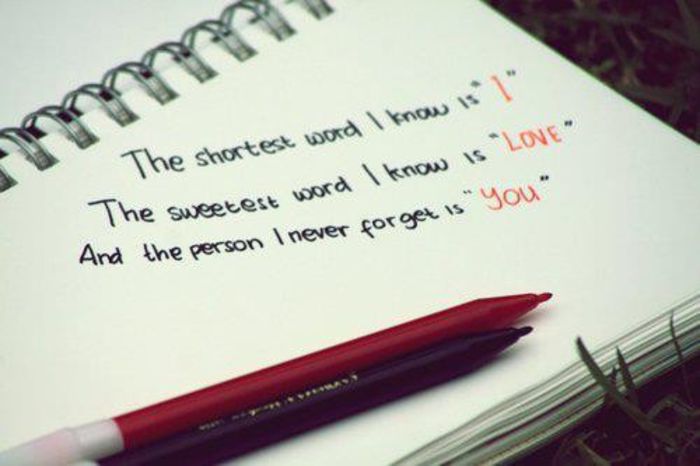 The shortest word I know is "I"
The sweetest word I know is "LOVE"
And the person I never forget is "YOU"